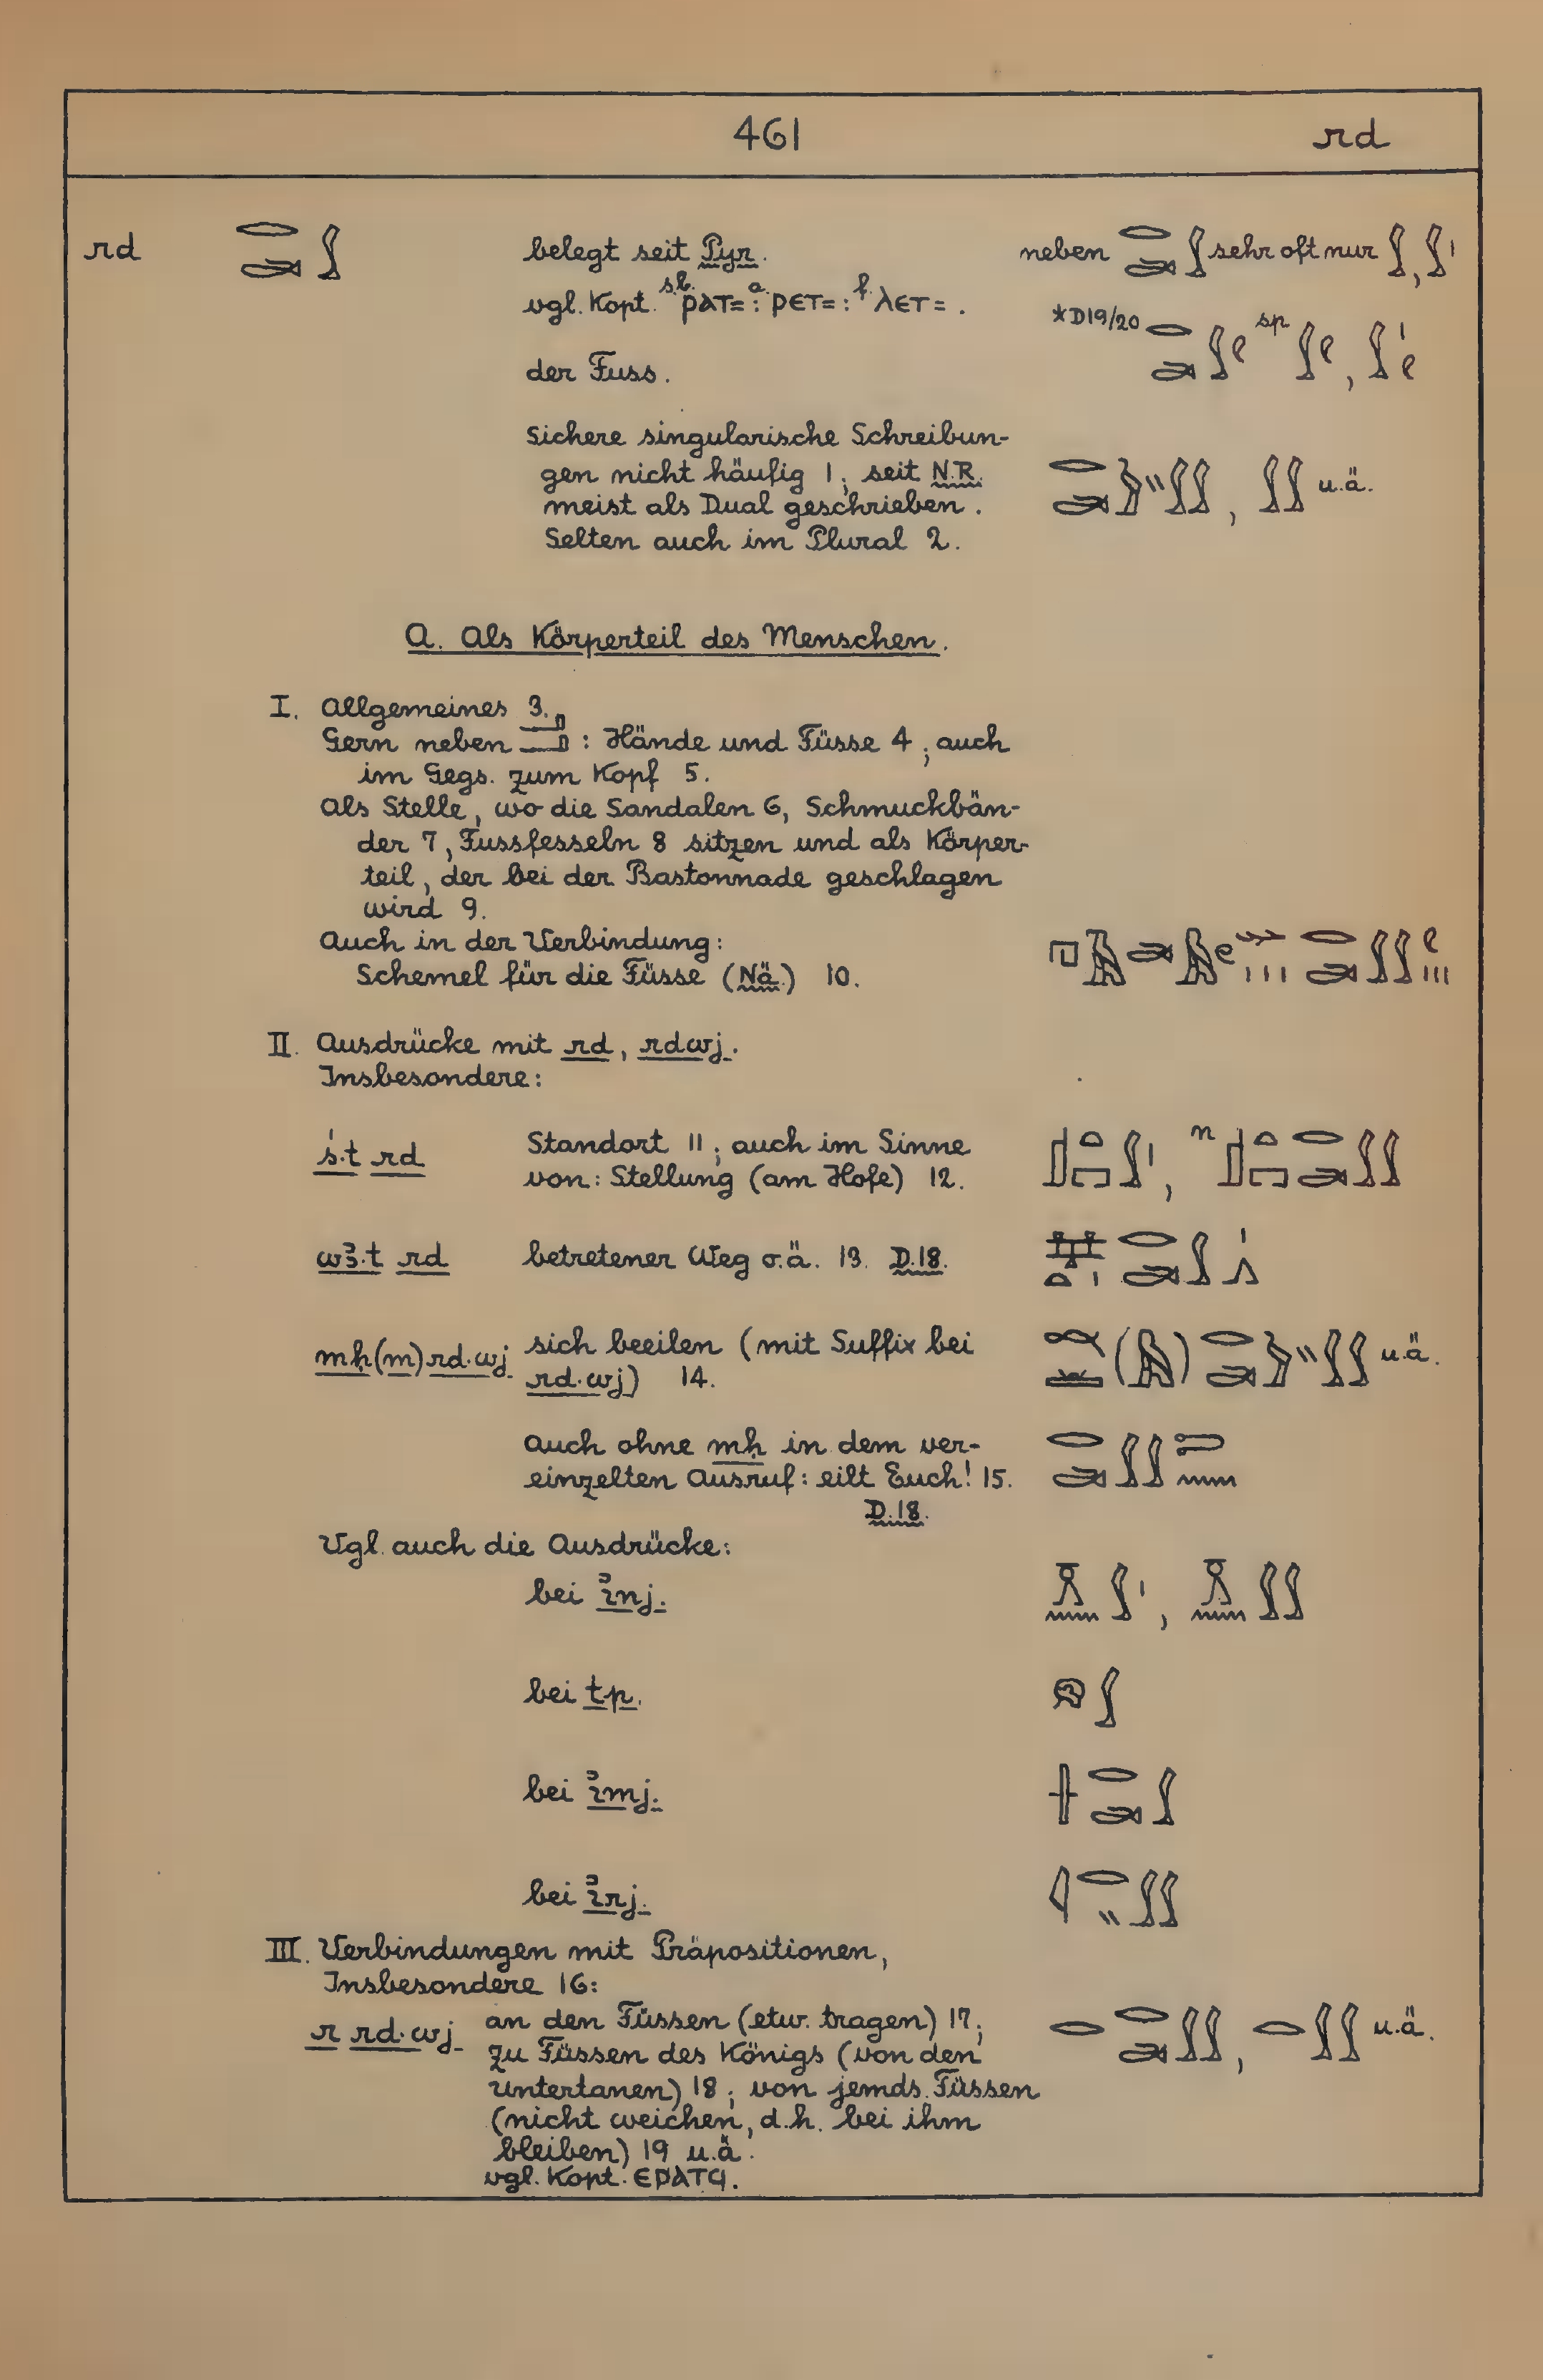 461 rd
rd belegt seit Pyr. neben sehr oft nur
vgl. Kopt. sb. ⲣⲁⲧ= : a. ⲣⲉⲧ= : f. ⲗⲉⲧ= .
*D19/20 sp
der Fuss.
Sichere singularische Schreibun-
gen nicht häufig 1; seit N.R.
meist als Dual geschrieben. u.ä.
Selten auch im Plural 2.
A. Als Körperteil des Menschen.
I. Allgemeines 3.
Gern neben : Hände und Füsse 4; auch
im Gegs. zum Kopf 5.
Als Stelle, wo die Sandalen 6, Schmuckbän-
der 7, Fussfesseln 8 sitzen und als Körper-
teil, der bei der Bastonnade geschlagen
wird 9.
Auch in der Verbindung:
Schemel für die Füsse (Nä.) 10.
II. Ausdrücke mit rd, rdwj.
Insbesondere:
ś.t rd Standort 11; auch im Sinne n
von: Stellung (am Hofe) 12.
wꜣ.t rd betretener Weg o.ä. 13. D.18.
mḥ(m) rd.wj sich beeilen (mit Suffix bei u.ä.
rd.wj) 14.
auch ohne mḥ in dem ver-
einzelten Ausruf: eilt Euch! 15.
D.18.
Vgl. auch die Ausdrücke:
bei ꞽnj.
bei tp.
bei ꞽmj.
bei ꞽrj.
III. Verbindungen mit Präpositionen,
Insbesondere 16:
r rd.wj an den Füssen (etw. tragen) 17; u.ä.
zu Füssen des Königs (von den
Untertanen) 18; von jemds. Füssen
(nicht weichen, d.h. bei ihm
bleiben) 19 u.ä.
vgl. Kopt. ⲉⲣⲁⲧϥ.